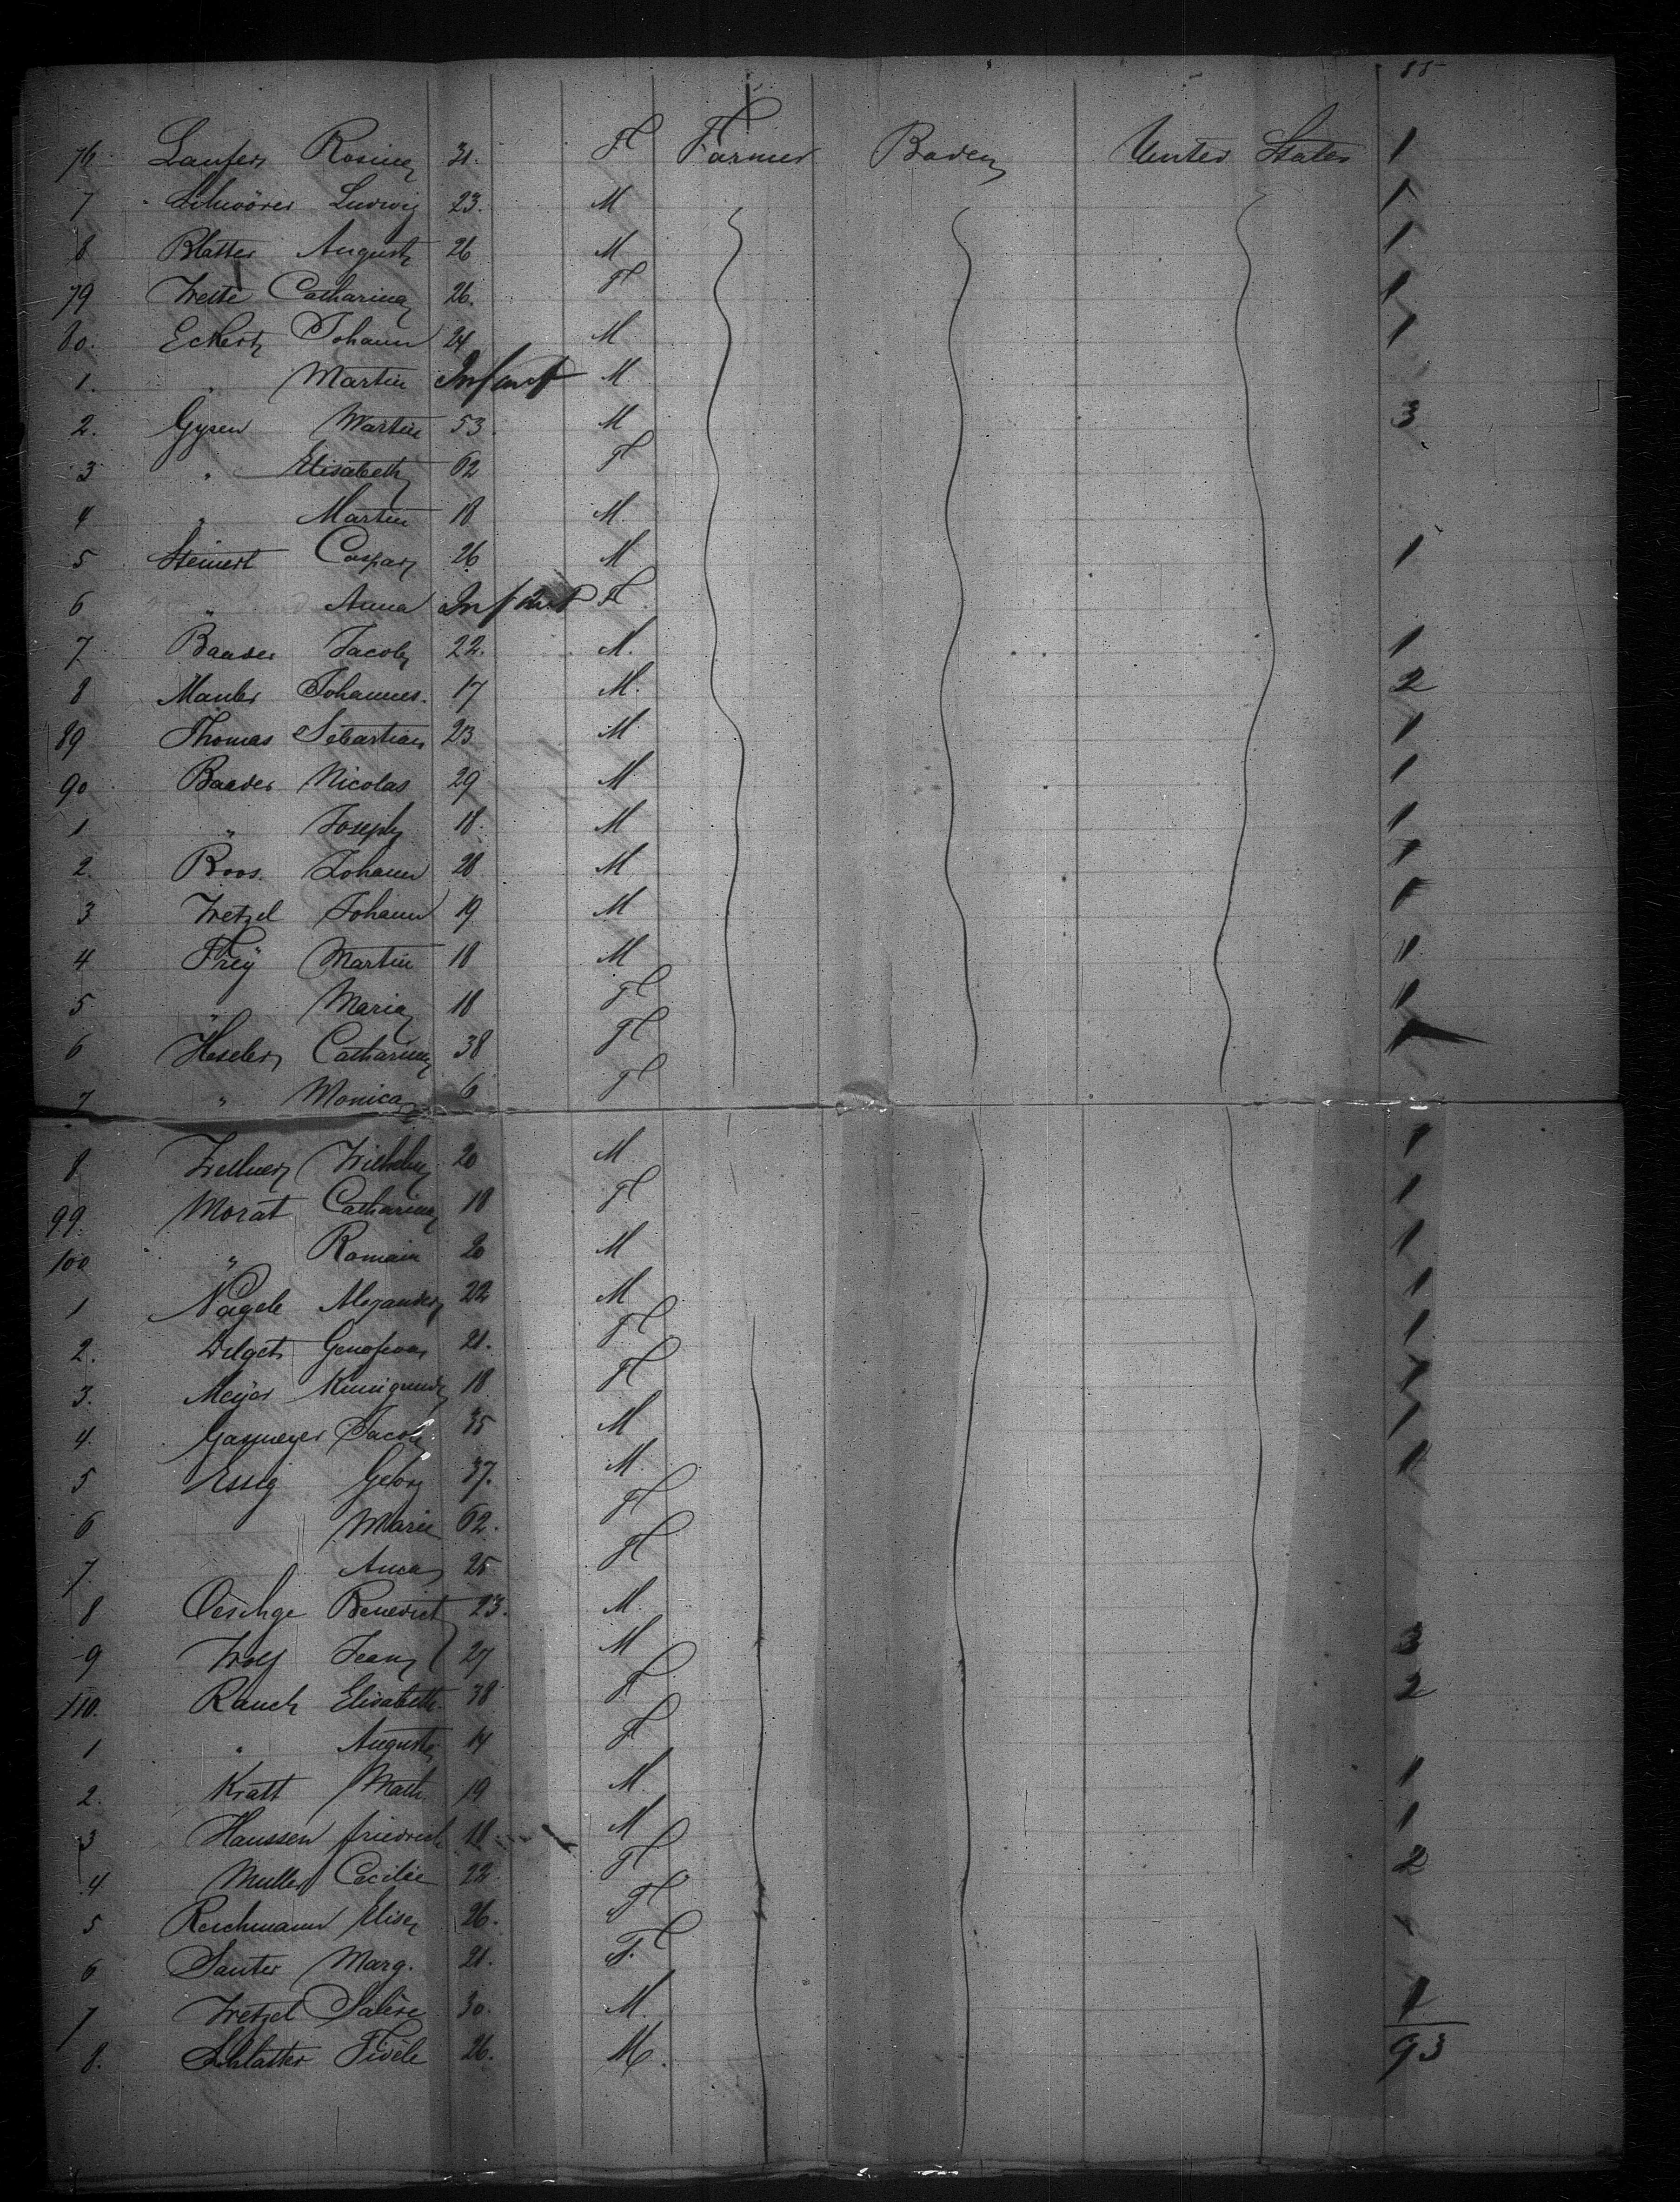 76 Laufer Rosine 31. F Farmer Baden United States 1
7 Schwörer Ludwig 23. M 1
8 Blatter August 26 M 1
79 Welte Catharina 26. F 1
80. Eckert Johann 24 M 1
1. " Martin Infant M
2. Gysen Martin 53. M 3
3 " Elisabeth 62 F
4 " Martin 18 M
5 Steinert Caspar 26 M 1
6 " Anna Infant F
7 Baader Jacob 22. M. 1
8 Johannes. 17 M. 2
89 Thomas Sebastian 23 M 1
90 Baader Nicolas 29 M 1
1 " Joseph 18. M 1
2. Roos. Johann 28 M 1
3 Wetzel Johann 19 M 1
4 Frey Martin 18 M 1
5 " Maria 18 F 1
6 Heseler Catharina 38 F 1
7 " Monica 6 F
8 Wellner Wilhelm 20 M 1
99. Morat Catharina 18 F 1
100 " Romain 20 M 1
1 Nägele Alexander 22 M 1
2. Genofeva 21. F 1
3. Meyer Kunigunde 18 F 1
4. Gassmeyer Jacob 35 M 1
5 Essig Georg 37. M 1
6 Marie 62. F
7. Anna 25 F
8 Oeschge Benedict 23. M
9 Wolf Jean 27 M 3
110. Rauch Elisabeth 38 F 2
1 " Auguste 14 F
2. Kratt Math. 19 M 1
3 Haussen friedrich 18 M 1
4 Muller Cecilie 22 F 2
5 Reichmann Elise 26. F
6 Sauter Marg. 21. F.
7 Wetzel Salire 30. M 1
8. Schlatter Fidèle 26. M. 93